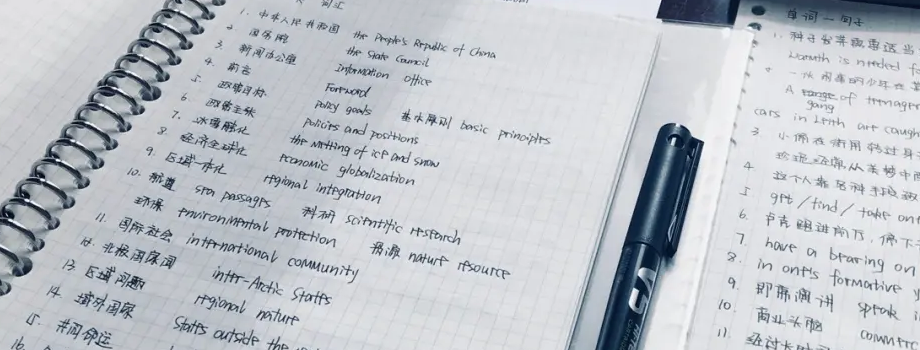 词汇
1. 中华人民共和国 the People's Republic of China
2. 国务院 the State Council
3. 新闻办公室 Information Office
4. 前言 Foreword
5. 政策目标 policy goals 基本原则 basic principles
6. 政策主张 policies and positions
7. 冰雪融化 the melting of ice and snow
8. 经济全球化 economic globalization
9. 区域一体化 regional integration
10. 航道 sea passages 科研 scientific research
环保 environmental protection 资源 nature resource
11. 国际社会 international community
12. 北极国家间 inter-Arctic States
13. 区域问题 regional nature
14. 域外国家 States outside the
15. 共同命运
16.
单词—句子
1. 种子发芽需要适当
Warmth is needed fo
A gang of teenagers
cars in Leith are caught
3. 小佩在
4. 这个人靠
5 get / find / take on
6.
7. have a bearing on
8. in one's formative y
9. 即席演讲 speak i
10. 商业头脑 commerc
11. 经过长时间